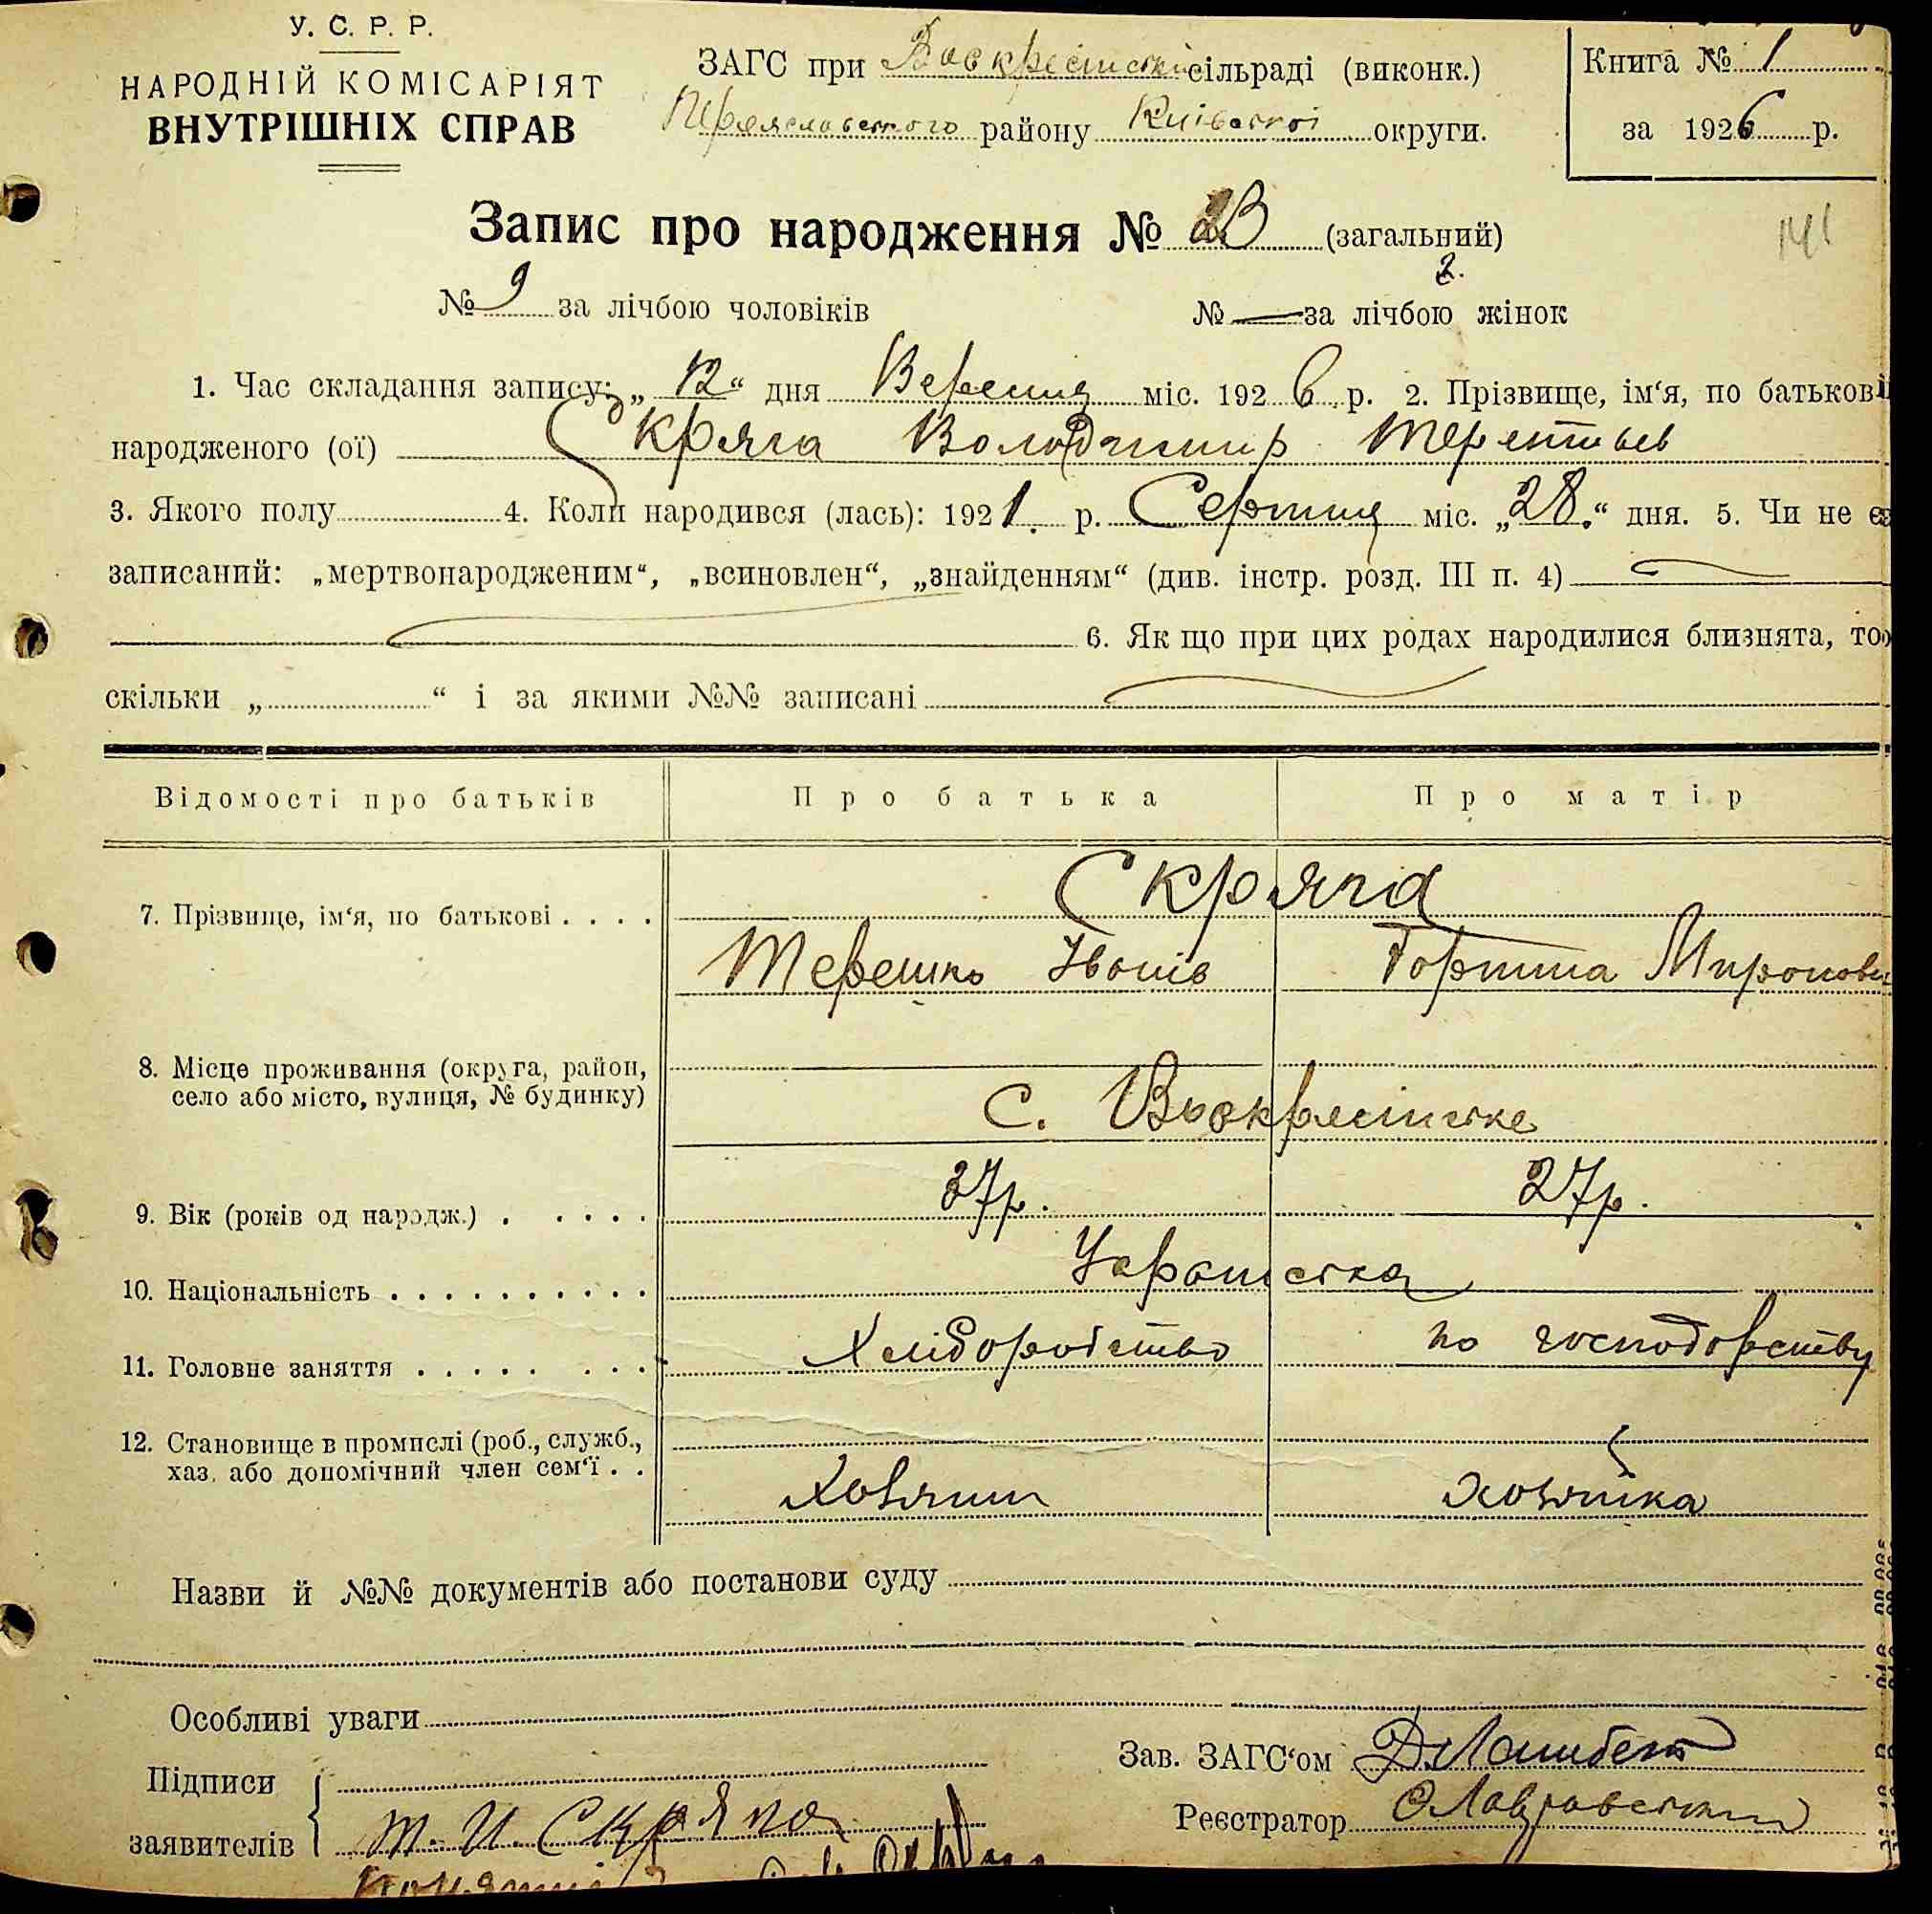 У. С. Р. Р.
НАРОДНІЙ КОМІСАРІЯТ
ВНУТРІШНІХ СПРАВ
ЗАГС при Воскресінській сільраді (виконк.)
Переяславського району Київської округи.
Книга № 1
за 1926 р.
141
Запис про народження № 23 (загальний)
2.
№ 9 за лічбою чоловіків № — за лічбою жінок
1. Час складання запису: „12“ дня Вересня міс. 1926 р. 2. Прізвище, ім‘я, по батькові
народженого (ої) Скряга Володимир Терентьев
3. Якого полу 4. Коли народився (лась): 1921 р. Серпня міс. „28“ дня. 5. Чи не є
записаний: „мертвонародженим“, „всиновлен“, „знайденням“ (див. інстр. розд. III п. 4)
6. Як що при цих родах народилися близнята, то
скільки „ “ і за якими №№ записані
Відомості про батьків Про батька Про матір
7. Прізвище, ім‘я, по батькові . . . . Скряга
Терешко Іванів Горпина Мироновн
8. Місце проживання (округа, район,
село або місто, вулиця, № будинку) с. Воскресінське
9. Вік (років од народж.) . . . . . 37р. 27р.
10. Національність . . . . . . . . . . Українська
11. Головне заняття . . . . . . . . . Хліборобство по господарству
12. Становище в промислі (роб., служб.,
хаз. або допомічний член сем‘ї . . Хозяин хозяйка
Назви й №№ документів або постанови суду
Особливі уваги
Підписи
заявителів Т. И. Скряга
Зав. ЗАГС‘ом
Реєстратор